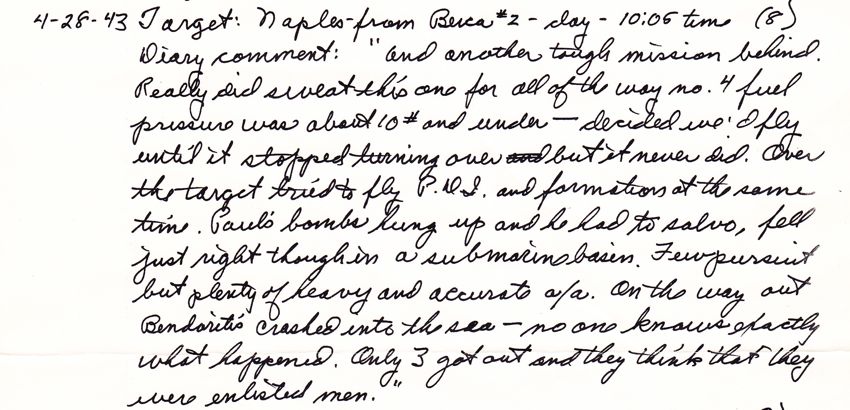 4-28-43 Target: Naples-from Berca #2 - day - 10:05 time (8)
Diary comment: "and another tough mission behind.
Really did sweat this one for all of the way no. 4 fuel
pressure was about 10# and under — decided we'd fly
until it stopped turning over and but it never did. Over
the target tried to fly P.D.I. and formation at the same
time. Paul's bombs hung up and he had to salvo, fell
just right though in a submarine basin. Few pursuit
but plenty of heavy and accurate a/a. On the way out
crashed into the sea — no one knows exactly
what happened. Only 3 got out and they think that they
were enlisted men."